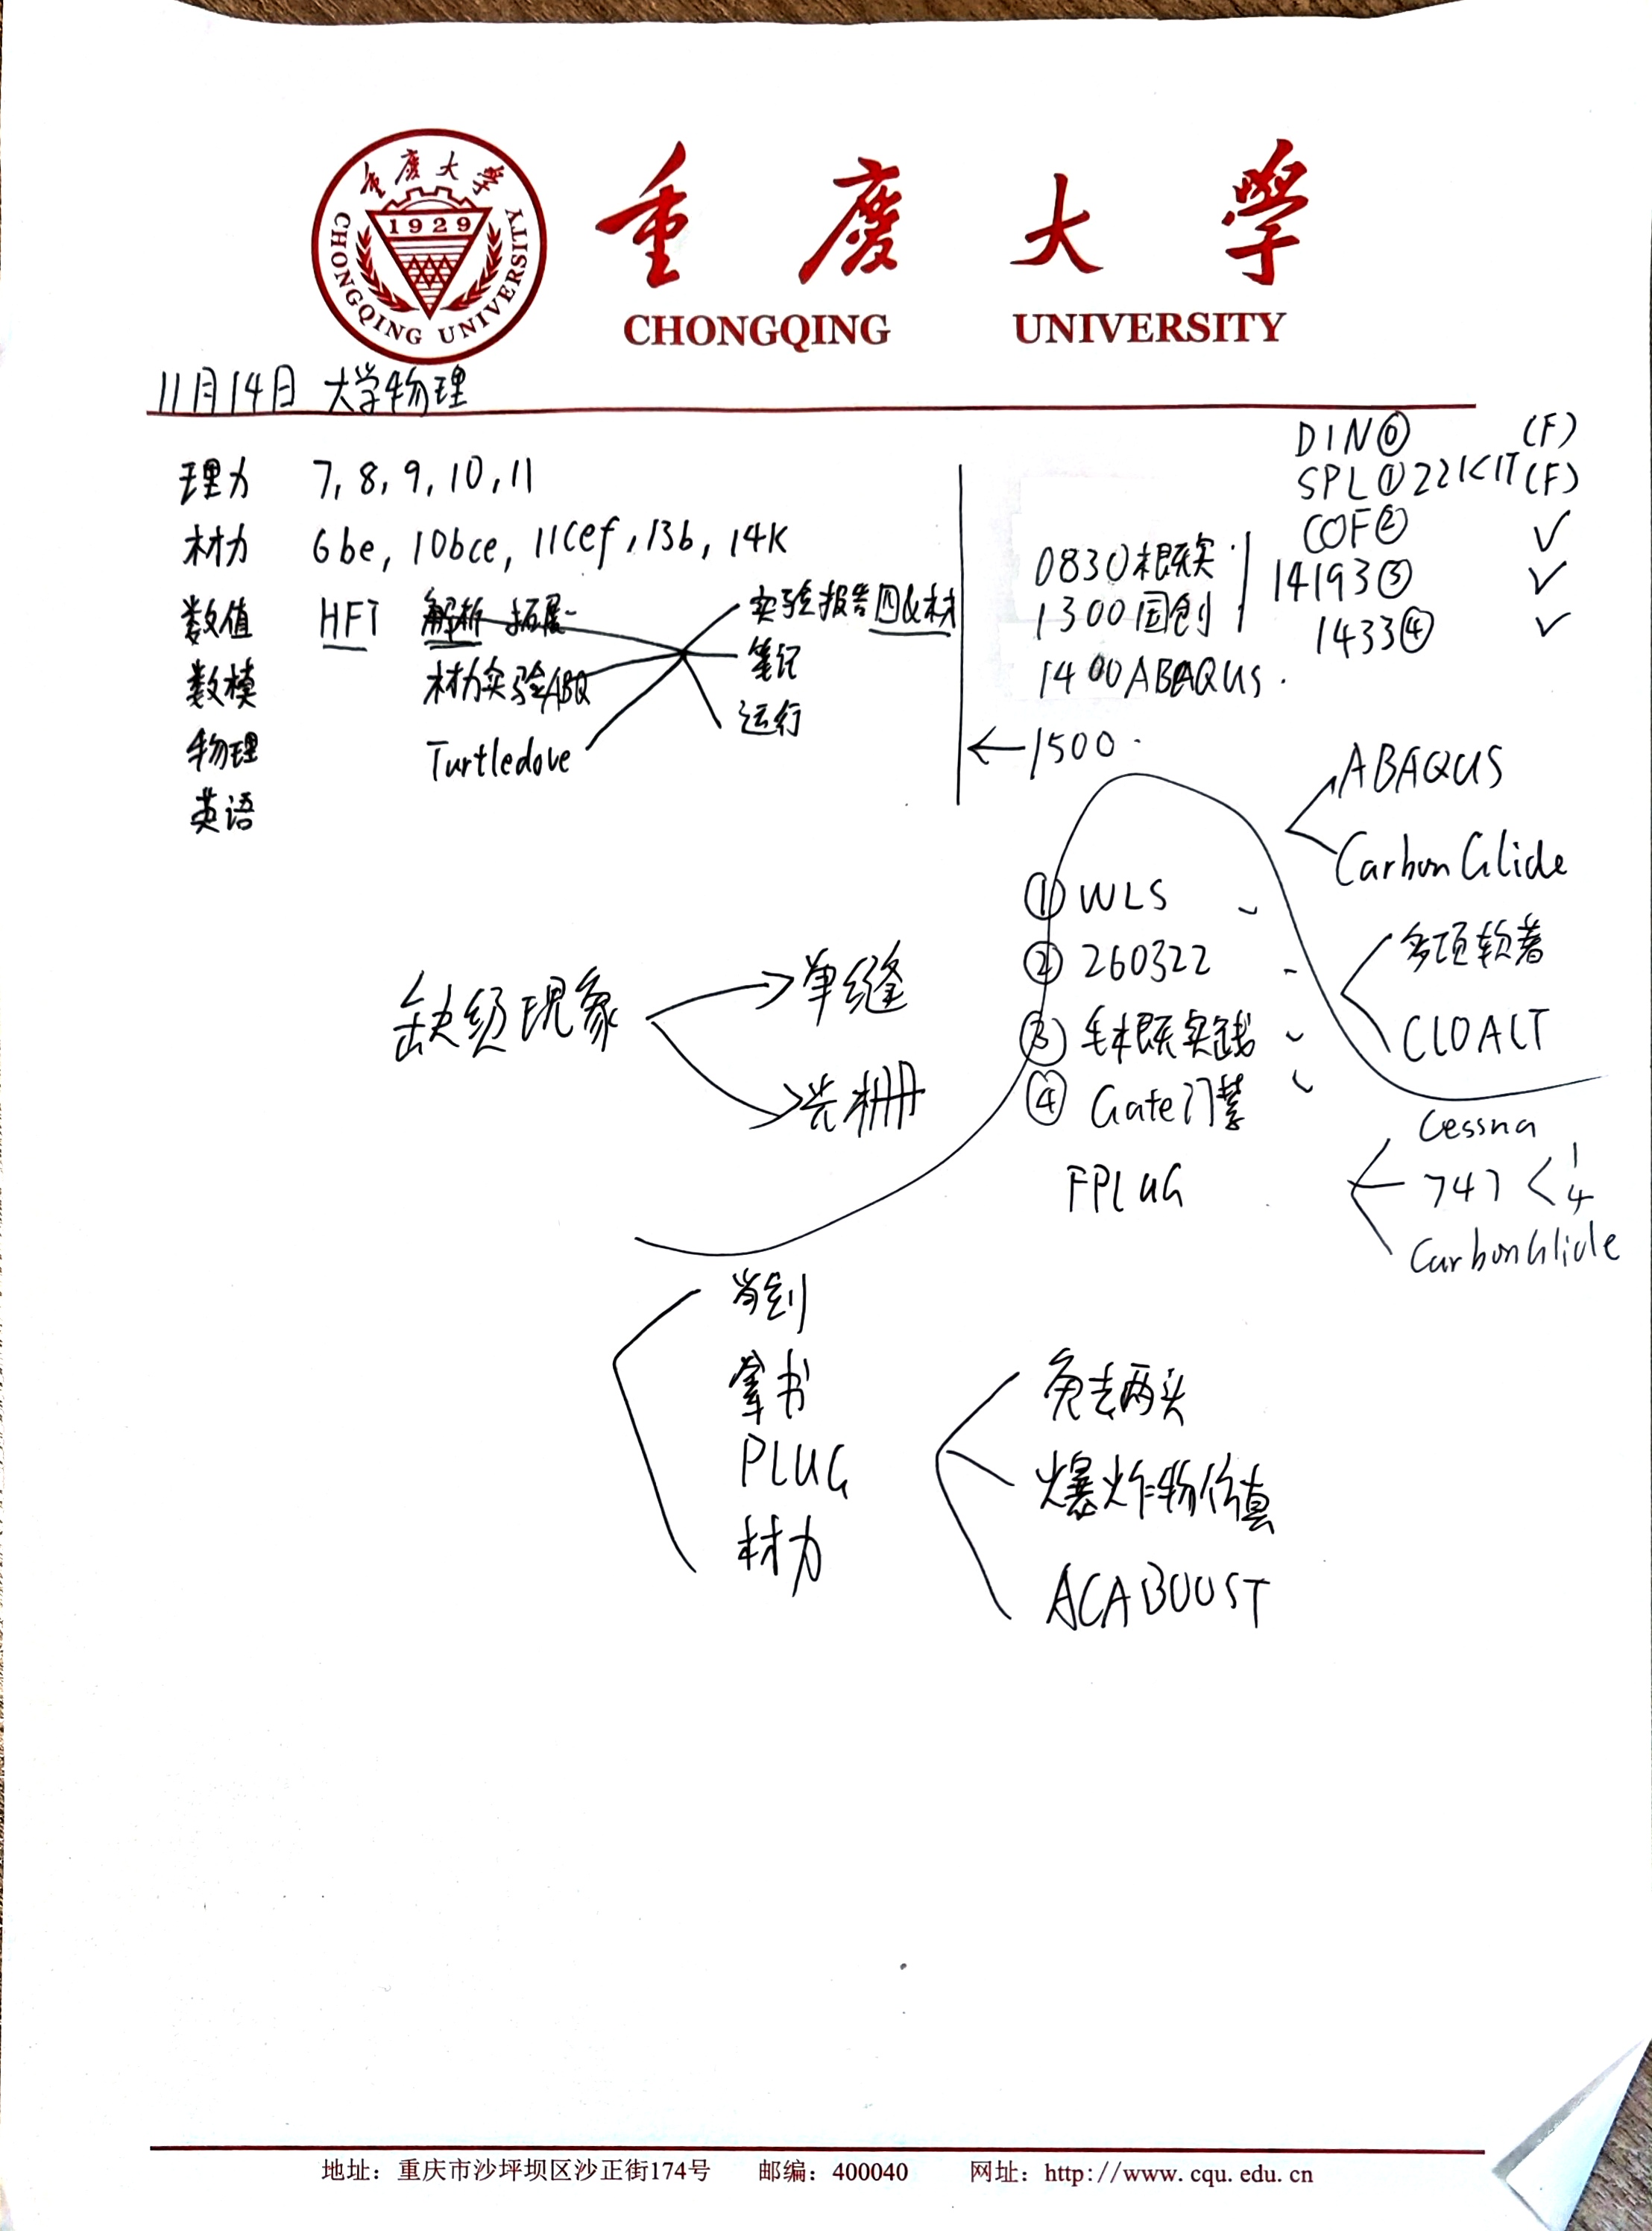 重慶大學
1929
CHONGQING UNIVERSITY
重慶大學
CHONGQING UNIVERSITY
11月14日 大学物理
理力 7, 8, 9, 10, 11
材力 6be, 10bce, 11cef, 13b, 14k
数值 HFT 解析 拓展
数模 材力实验ABQ
物理 Turtledove
英语
实验报告四&材
笔记
运行
DIN⓪ (F)
SPL①22KIT(F)
COF② ✓
14193③ ✓
1433④ ✓
0830概实
1300国创
1400ABAQUS.
←1500
ABAQUS
CarbonGlide
①WLS
②260322
③毛概实践
④Gate门禁
FPLUG
多项软著
CLOALT
Cessna
747 < 1 4
CarbonGlide
缺级现象
单缝
光栅
拿书
PLUG
材力
免去两头
爆炸物仿真
ACABOOST
地址：重庆市沙坪坝区沙正街174号 邮编：400040 网址：http://www.cqu.edu.cn